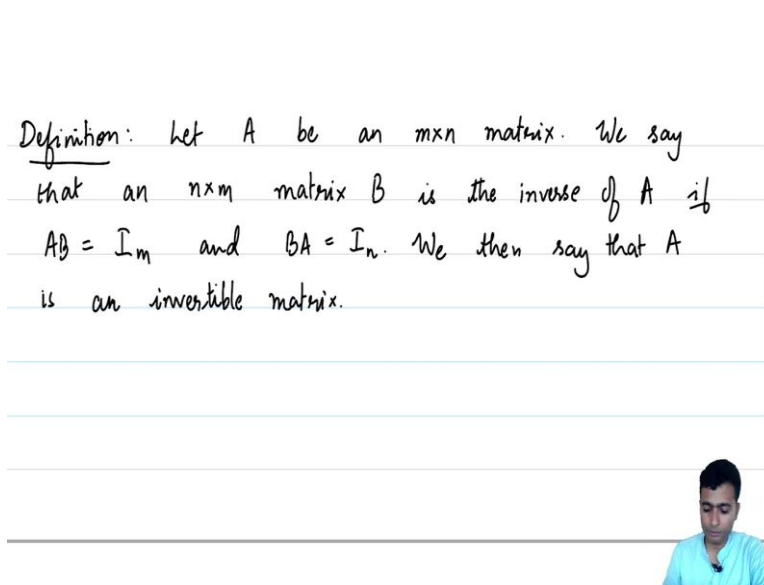 Definition: Let A be an m×n matrix. We say
that an n×m matrix B is the inverse of A if
AB = Iₘ and BA = Iₙ. We then say that A
is an invertible matrix.